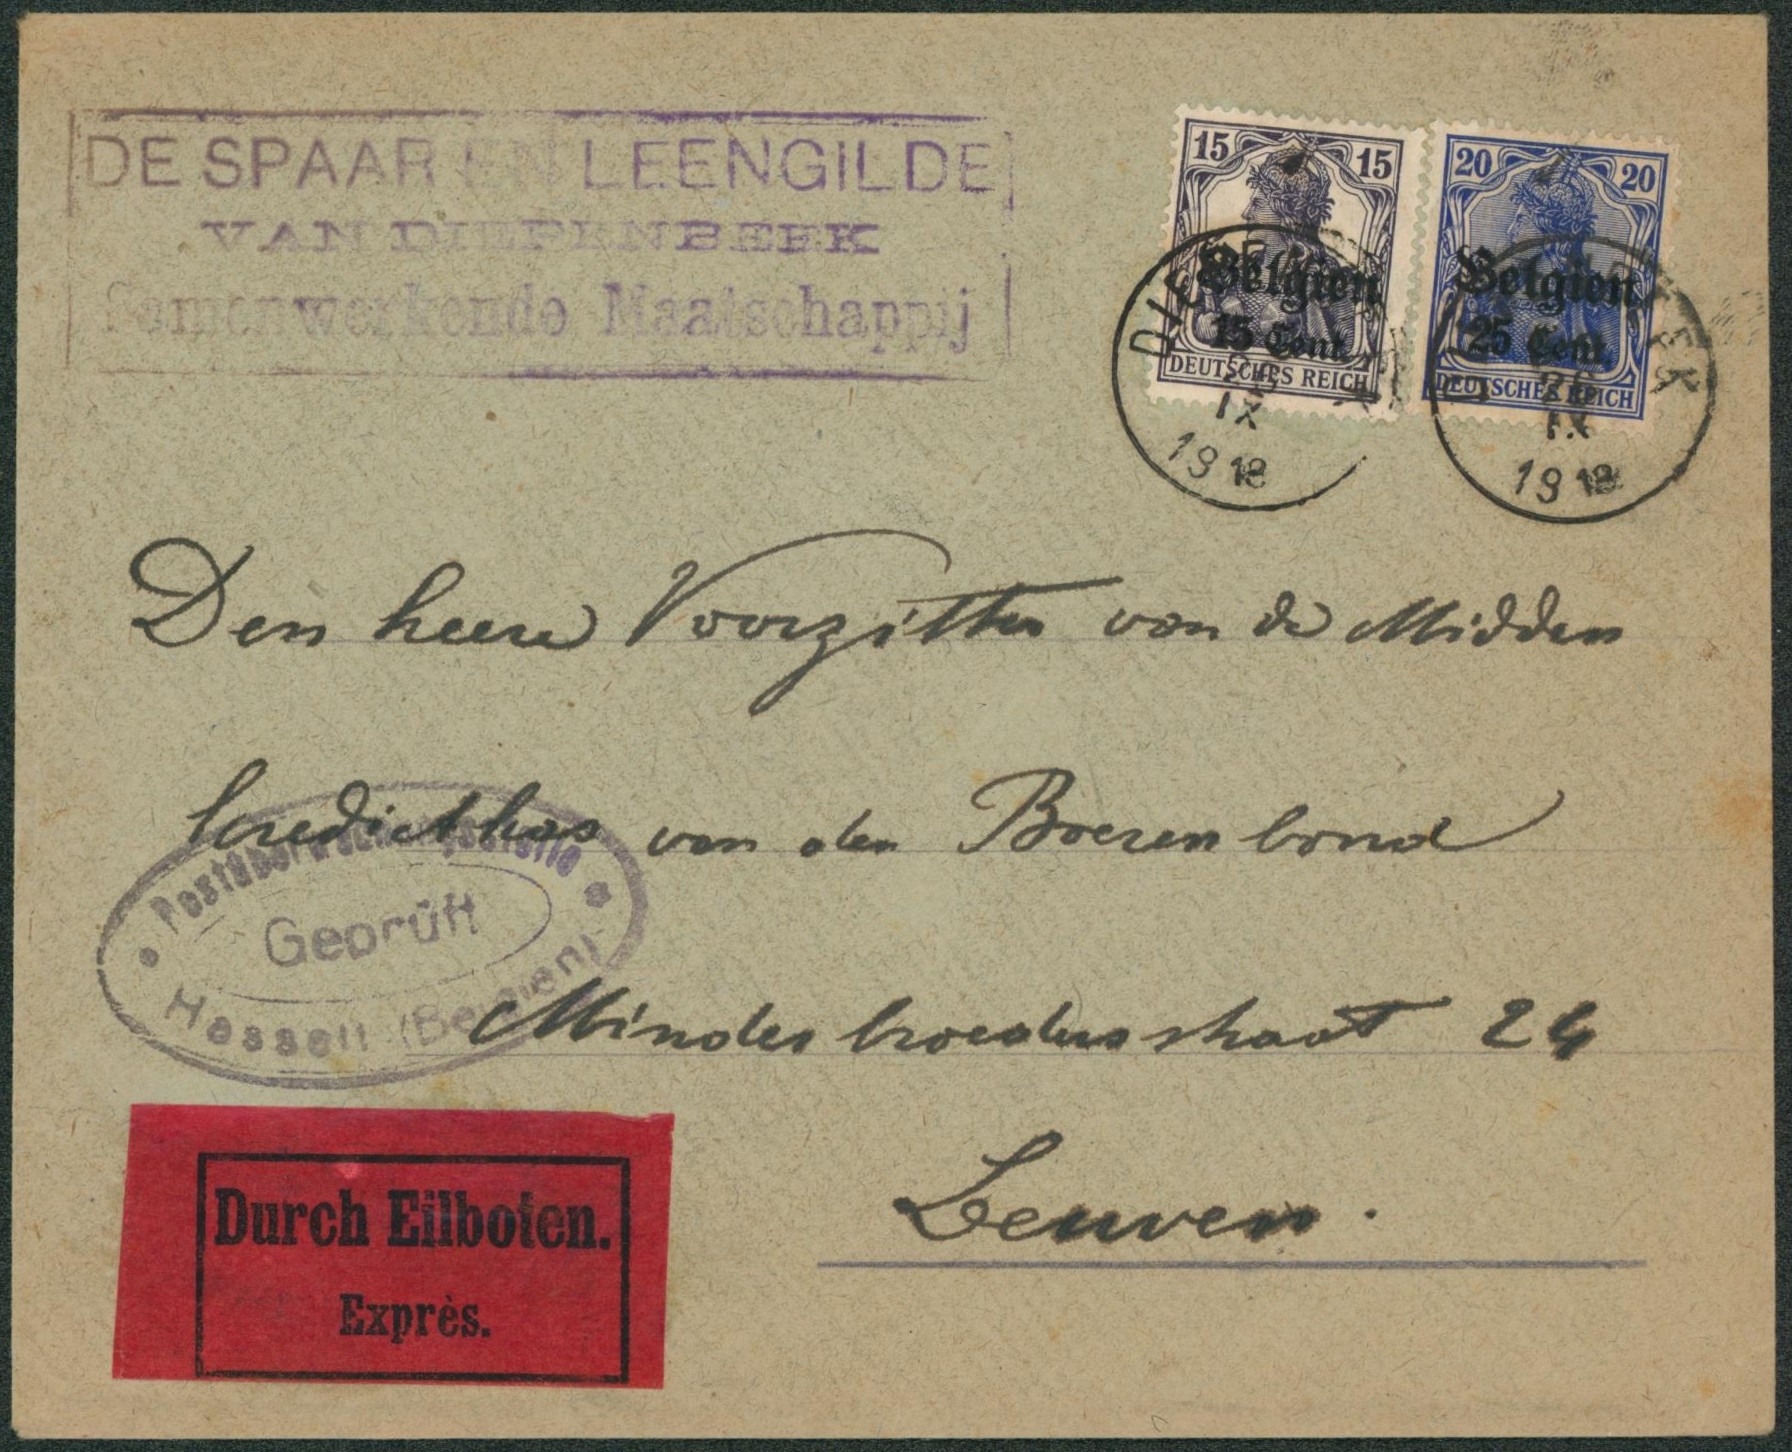 DE SPAAR EN LEENGILDE
VAN DIEPENBEEK
Samenwerkende Maatschappij
15 15
Belgien
15 Cent.
DEUTSCHES REICH
20 20
Belgien
25 Cent.
DEUTSCHES REICH
DIEPENBEEK
IX
1918
DIEPENBEEK
IX
1918
Den heere Voorzitter van de Midden
kredietkas van den Boerenbond
Minderbroedersstraat 24
Leuven.
Postüberwachungsstelle
Geprüft
Hasselt (Belgien)
Durch Eilboten.
Exprès.